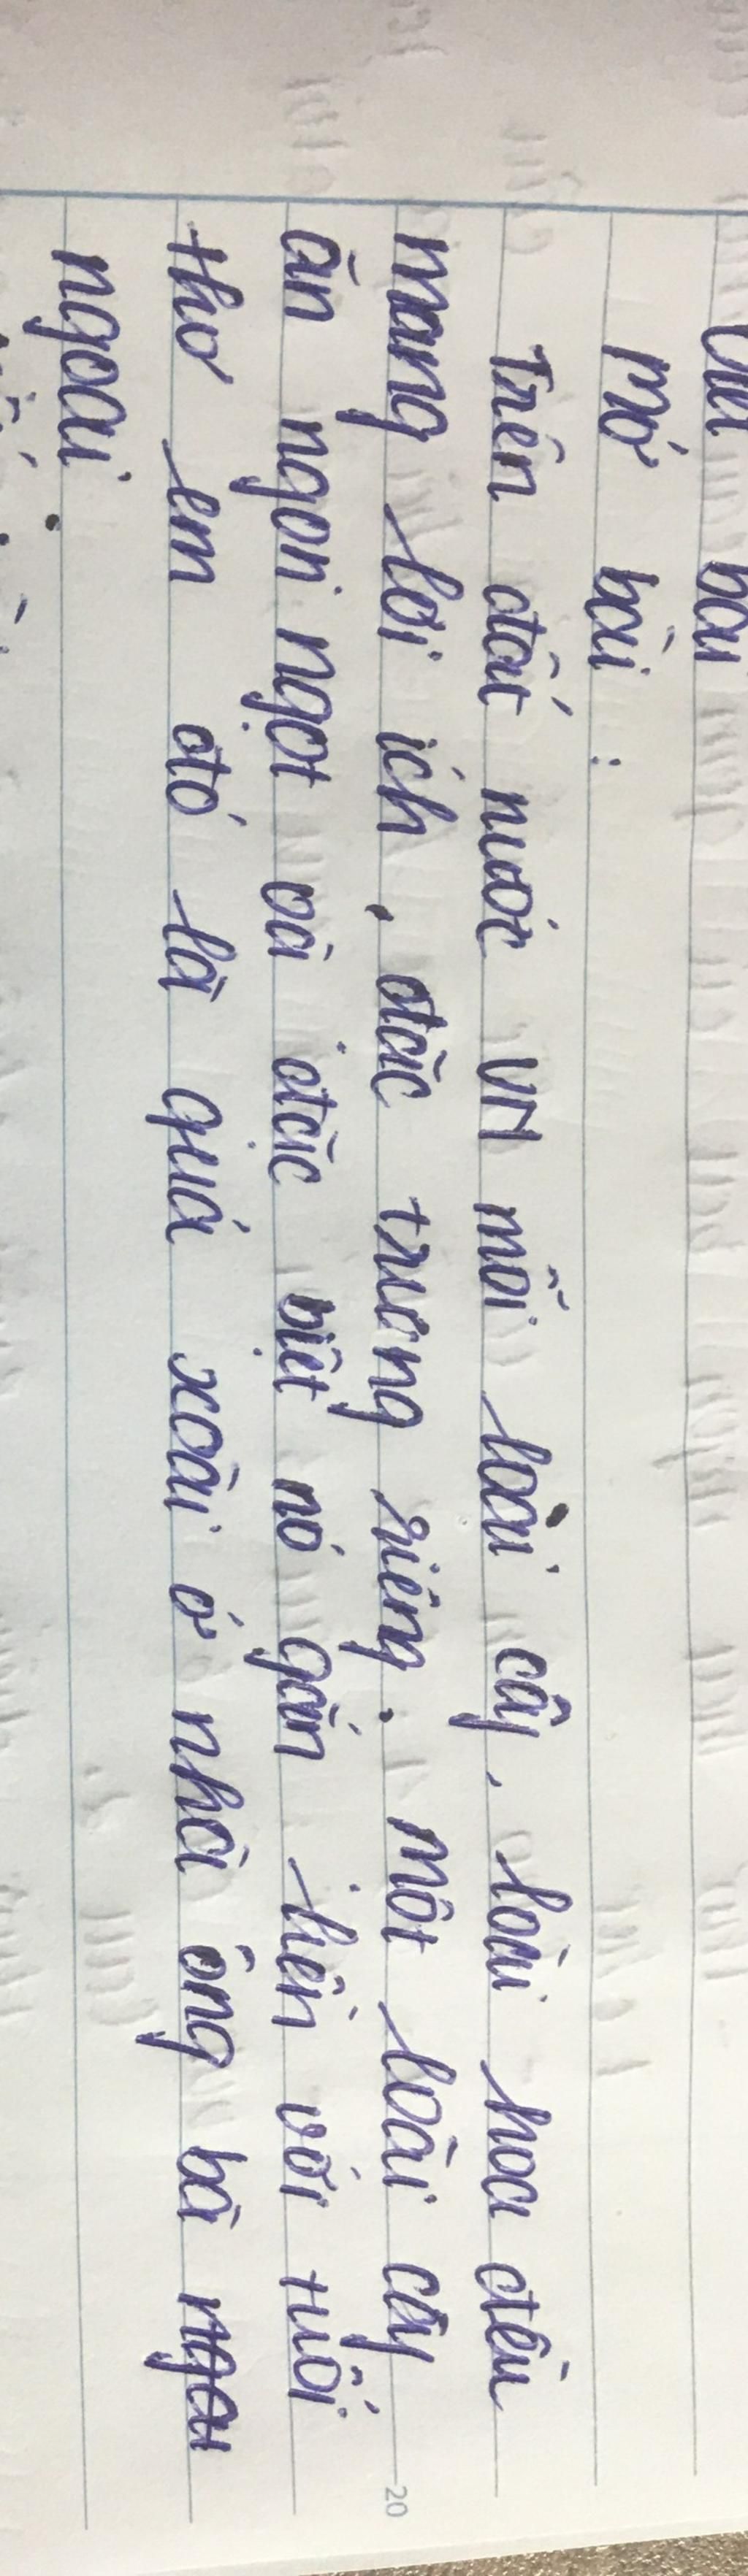 bài
Mở bài :
Trên đất nước VN mỗi loài cây, loài hoa đều
mang lợi ích, đặc trưng riêng. Một loài cây
ăn ngon ngọt và đặc biệt nó gắn liền với tuổi
thơ em đó là quả xoài ở nhà ông bà
ngoại.
20